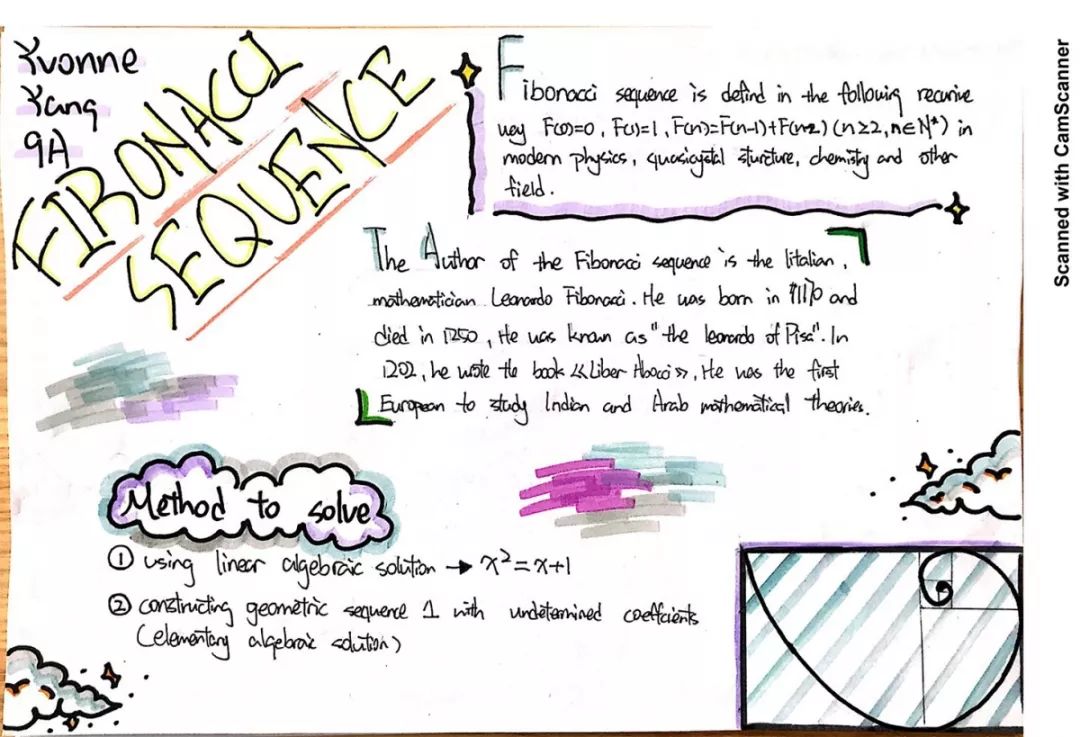 Yvonne
Yang
9A
FIBONACCI
SEQUENCE
Fibonacci sequence is defind in the following recurive
wey F(0)=0, F(1)=1, F(n)=F(n-1)+F(n-2) (n≥2, n∈N*) in
modern physics, quasicystal sturcture, chemistry and other
field.
The Author of the Fibonacci sequence is the litalian,
mathematician Leonardo Fibonacci. He was born in 1170 and
died in 1250, He was known as "the leonardo of Pisa". In
1202, he wrote the book 《Liber Abaci》, He was the first
European to study Indian and Arab mathematical theories.
Method to solve
① using linear algebraic solution → x²=x+1
② constructing geometric sequence 1 with undetermined coefficients
(elementary algebraic solution)
Scanned with CamScanner